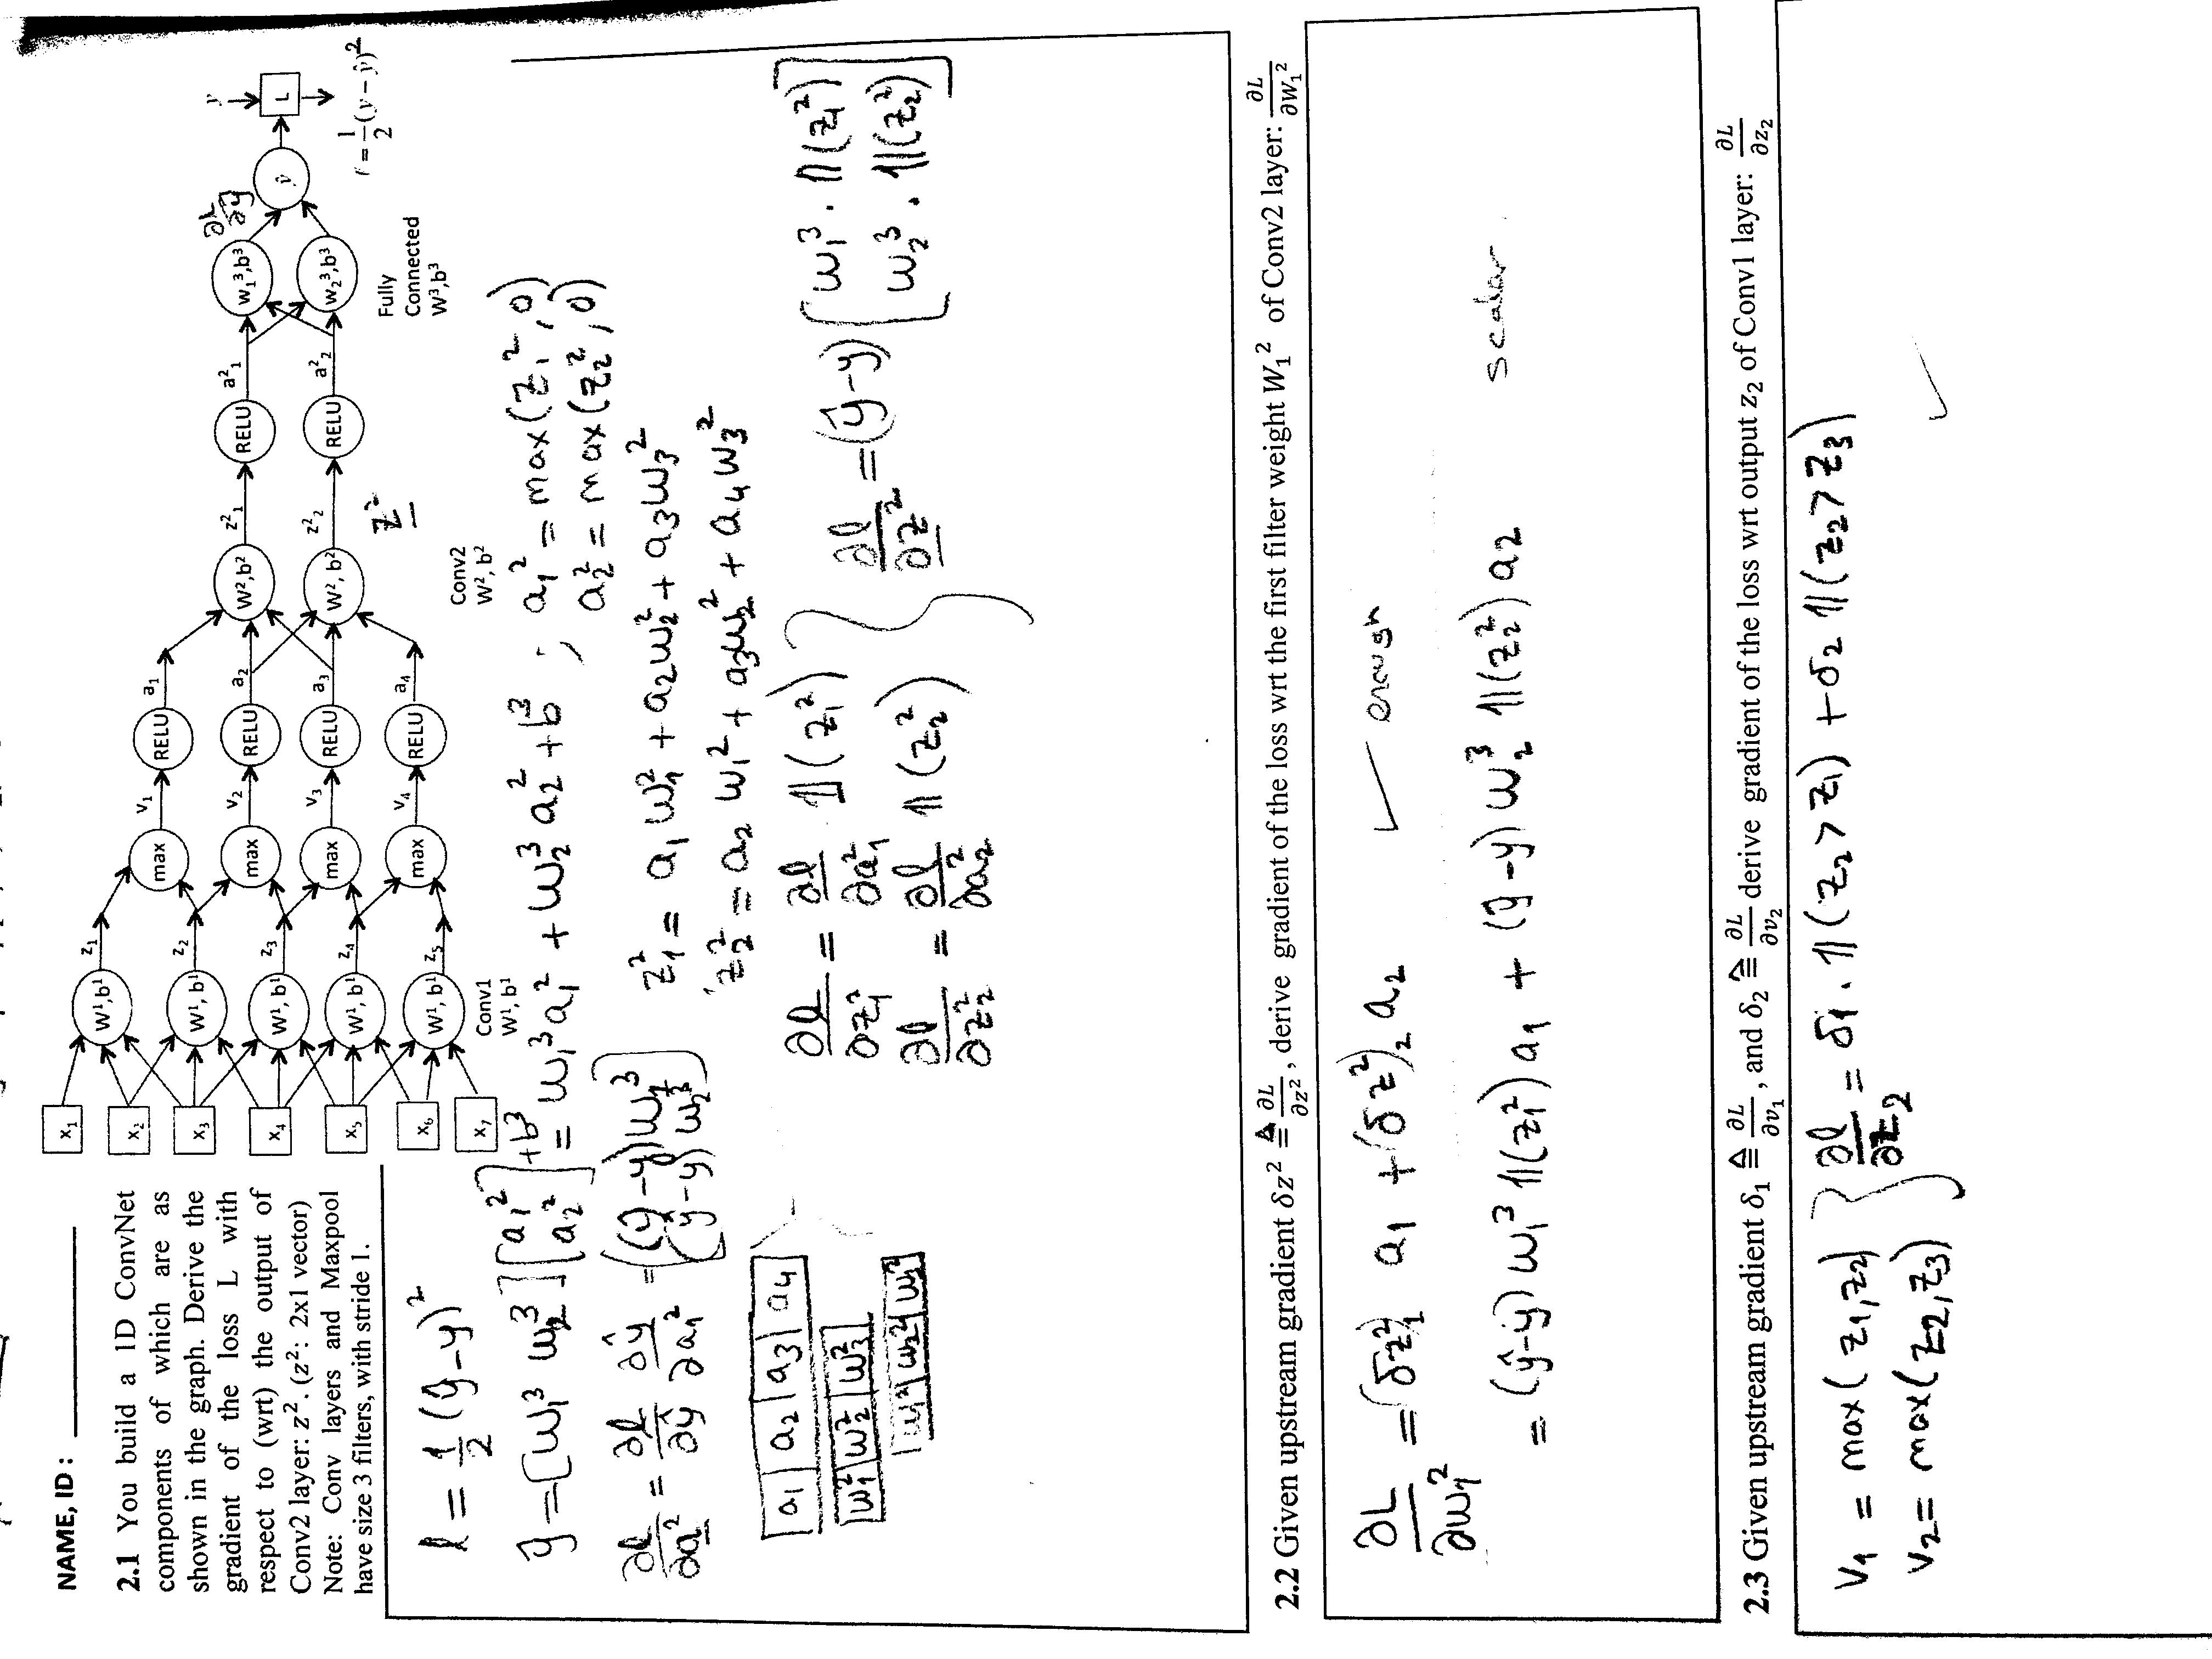 NAME, ID :
2.1 You build a 1D ConvNet
components of which are as
shown in the graph. Derive the
gradient of the loss L with
respect to (wrt) the output of
Conv2 layer: z². (z²: 2x1 vector)
Note: Conv layers and Maxpool
have size 3 filters, with stride 1.
x₁
x₂
x₃
x₄
x₅
x₆
x₇
W¹,b¹
W¹, b¹
W¹, b¹
W¹, b¹
W¹, b¹
Conv1
W¹, b¹
z₁
z₂
z₃
z₄
z₅
max
max
max
max
v₁
v₂
v₃
v₄
RELU
RELU
RELU
RELU
a₁
a₂
a₃
a₄
W²,b²
W², b²
Conv2
W², b²
z²₁
z²₂
z²
RELU
RELU
a²₁
a²₂
w₁³,b³
w₂³,b³
Fully
Connected
W³,b³
∂L/∂ŷ
ŷ
y
L
l = 1/2 (y − ŷ)²
l = 1/2 (ŷ−y)²
ŷ = [w₁³ w₂³] [a₁² a₂²] + b³ = w₁³ a₁² + w₂³ a₂² + b³ ; a₁² = max(z₁², 0)
a₂² = max(z₂², 0)
∂l/∂a² = ∂l/∂ŷ ∂ŷ/∂a₁² = ((ŷ−y) w₁³
(ŷ−y) w₂³)
z₁² = a₁ w₁² + a₂ w₂² + a₃ w₃²
z₂² = a₂ w₁² + a₃ w₂² + a₄ w₃²
a₁ | a₂ | a₃ | a₄
w₁² | w₂² | w₃²
w₁² | w₂² | w₃²
∂l/∂z₁² = ∂l/∂a₁² 𝟙(z₁²)
∂l/∂z₂² = ∂l/∂a₂² 𝟙(z₂²)
∂l/∂z² = (ŷ−y) [w₁³ . 𝟙(z₁²)
w₂³ . 𝟙(z₂²)]
2.2 Given upstream gradient δz² ≜ ∂L/∂z², derive gradient of the loss wrt the first filter weight W₁² of Conv2 layer: ∂L/∂W₁²
∂L/∂w₁² = (δz²)₁ a₁ + (δz²)₂ a₂ ✓ enough
= (ŷ−y) w₁³ 𝟙(z₁²) a₁ + (ŷ−y) w₂³ 𝟙(z₂²) a₂ scalar.
2.3 Given upstream gradient δ₁ ≜ ∂L/∂v₁, and δ₂ ≜ ∂L/∂v₂ derive gradient of the loss wrt output z₂ of Conv1 layer: ∂L/∂z₂
v₁ = max(z₁,z₂)
v₂ = max(z₂,z₃)
∂l/∂z₂ = δ₁ . 𝟙(z₂ > z₁) + δ₂ 𝟙(z₂ > z₃) ✓